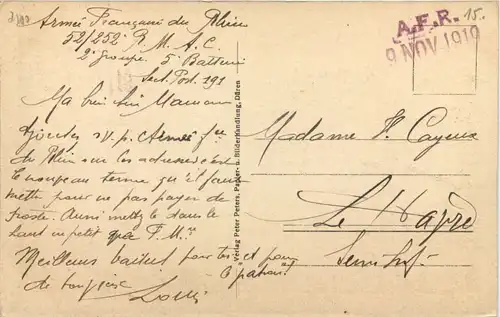 Armée Française du Rhin
52/252e R. M. A. C.
2e Groupe. 5e Batterie
Sect. Post. 191
Ma bien chère Maman
Ajoutez s.v.p. Armée fse
du Rhin sur les adresses c'est
le nouveau terme qu'il faut
mettre pour ne pas payer de
poste. Aussi mettez le dans le
haut un petit F. M.
Meilleurs baisers pour toi et pour
le "patron"
de toujours
Louis
Verlag Peter Peters, Papier- u. Bilderhandlung, Düren
A.F.R.
9 NOV 1919
15.-
Madame Vve Cayeux
Le Havre
Seine Infre